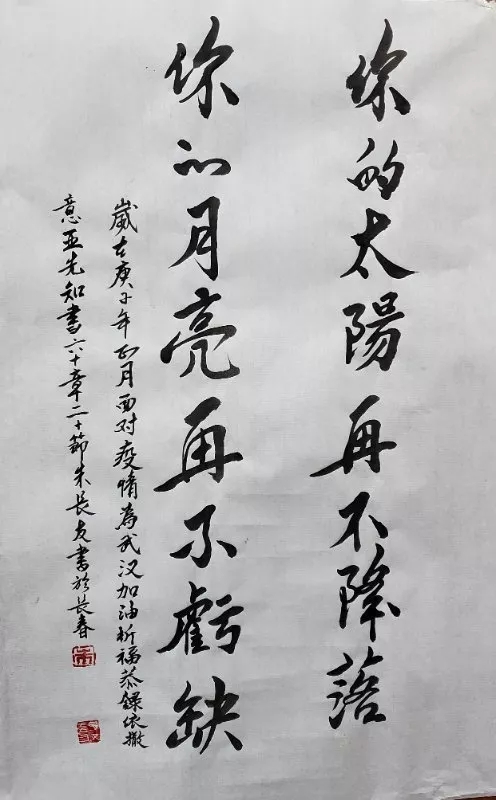 你的太陽再不降落
你的月亮再不虧缺
歲在庚子年正月面对疫情為武汉加油祈福恭錄依撒
意亚先知書六十章二十節朱長友書於長春